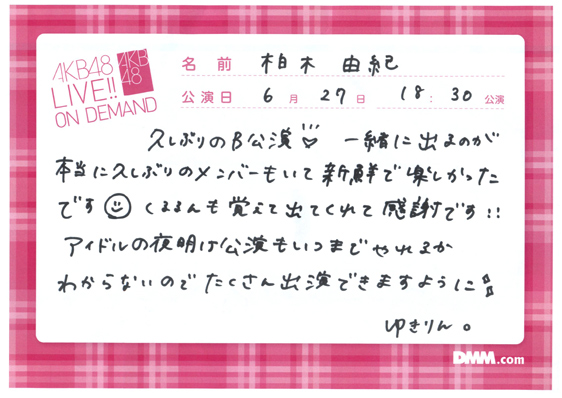 AKB48
LIVE!!
ON DEMAND
AKB
48
名前 柏木 由紀
公演日 6月 27日 18:30 公演
久しぶりのB公演♡ 一緒に出るのが
本当に久しぶりのメンバーもいて新鮮で楽しかった
です☺ くるるんも覚えて出てくれて感謝です!!
アイドルの夜明け公演もいつまでやれるか
わからないのでたくさん出演できますように!!
ゆきりん。
DMM.com